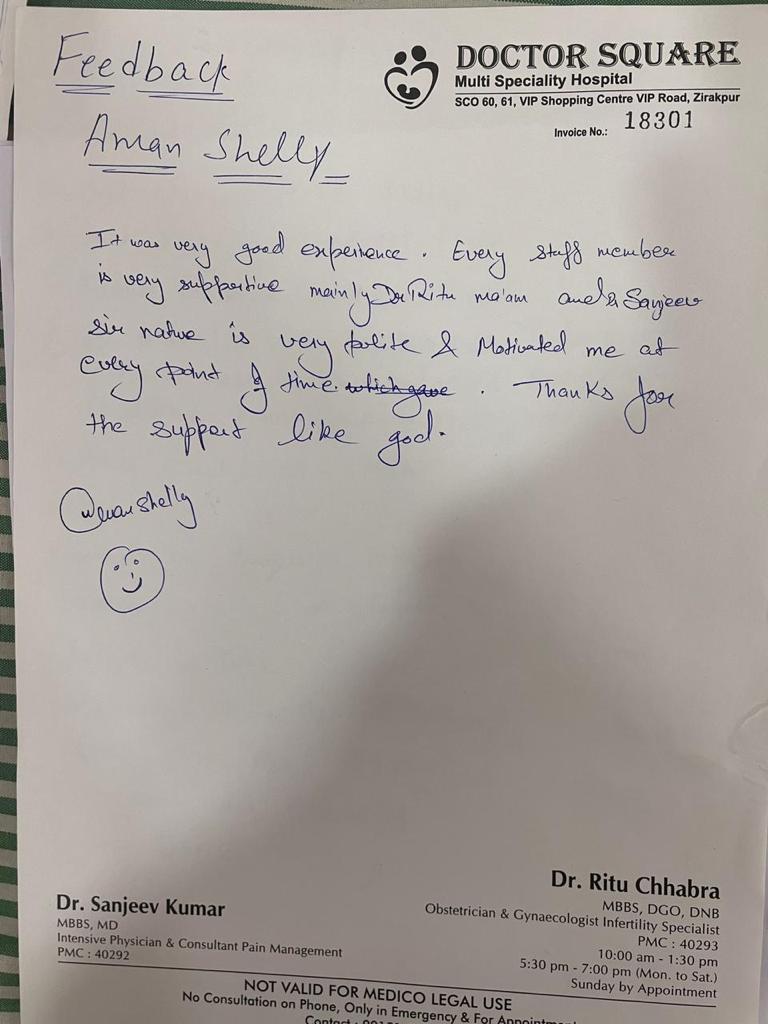 Feedback
DOCTOR SQUARE
Multi Speciality Hospital
SCO 60, 61, VIP Shopping Centre VIP Road, Zirakpur
Invoice No.: 18301
Aman Shelly
It was very good experience. Every staff member
is very supportive mainly Dr Ritu ma'am and Sanjeev
sir nature is very polite & Motivated me at
every point of time. which gave . Thanks for
the support like god.
Aman Shelly
Dr. Sanjeev Kumar
MBBS, MD
Intensive Physician & Consultant Pain Management
PMC : 40292
Dr. Ritu Chhabra
MBBS, DGO, DNB
Obstetrician & Gynaecologist Infertility Specialist
PMC : 40293
10:00 am - 1:30 pm
5:30 pm - 7:00 pm (Mon. to Sat.)
Sunday by Appointment
NOT VALID FOR MEDICO LEGAL USE
No Consultation on Phone, Only in Emergency & For
Contact :